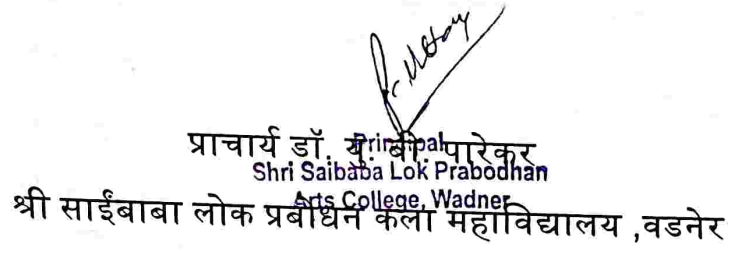 प्राचार्य डॉ. यु. बी. पारेकर
Principal
Shri Saibaba Lok Prabodhan
Arts College, Wadner
श्री साईंबाबा लोक प्रबोधन कला महाविद्यालय ,वडनेर